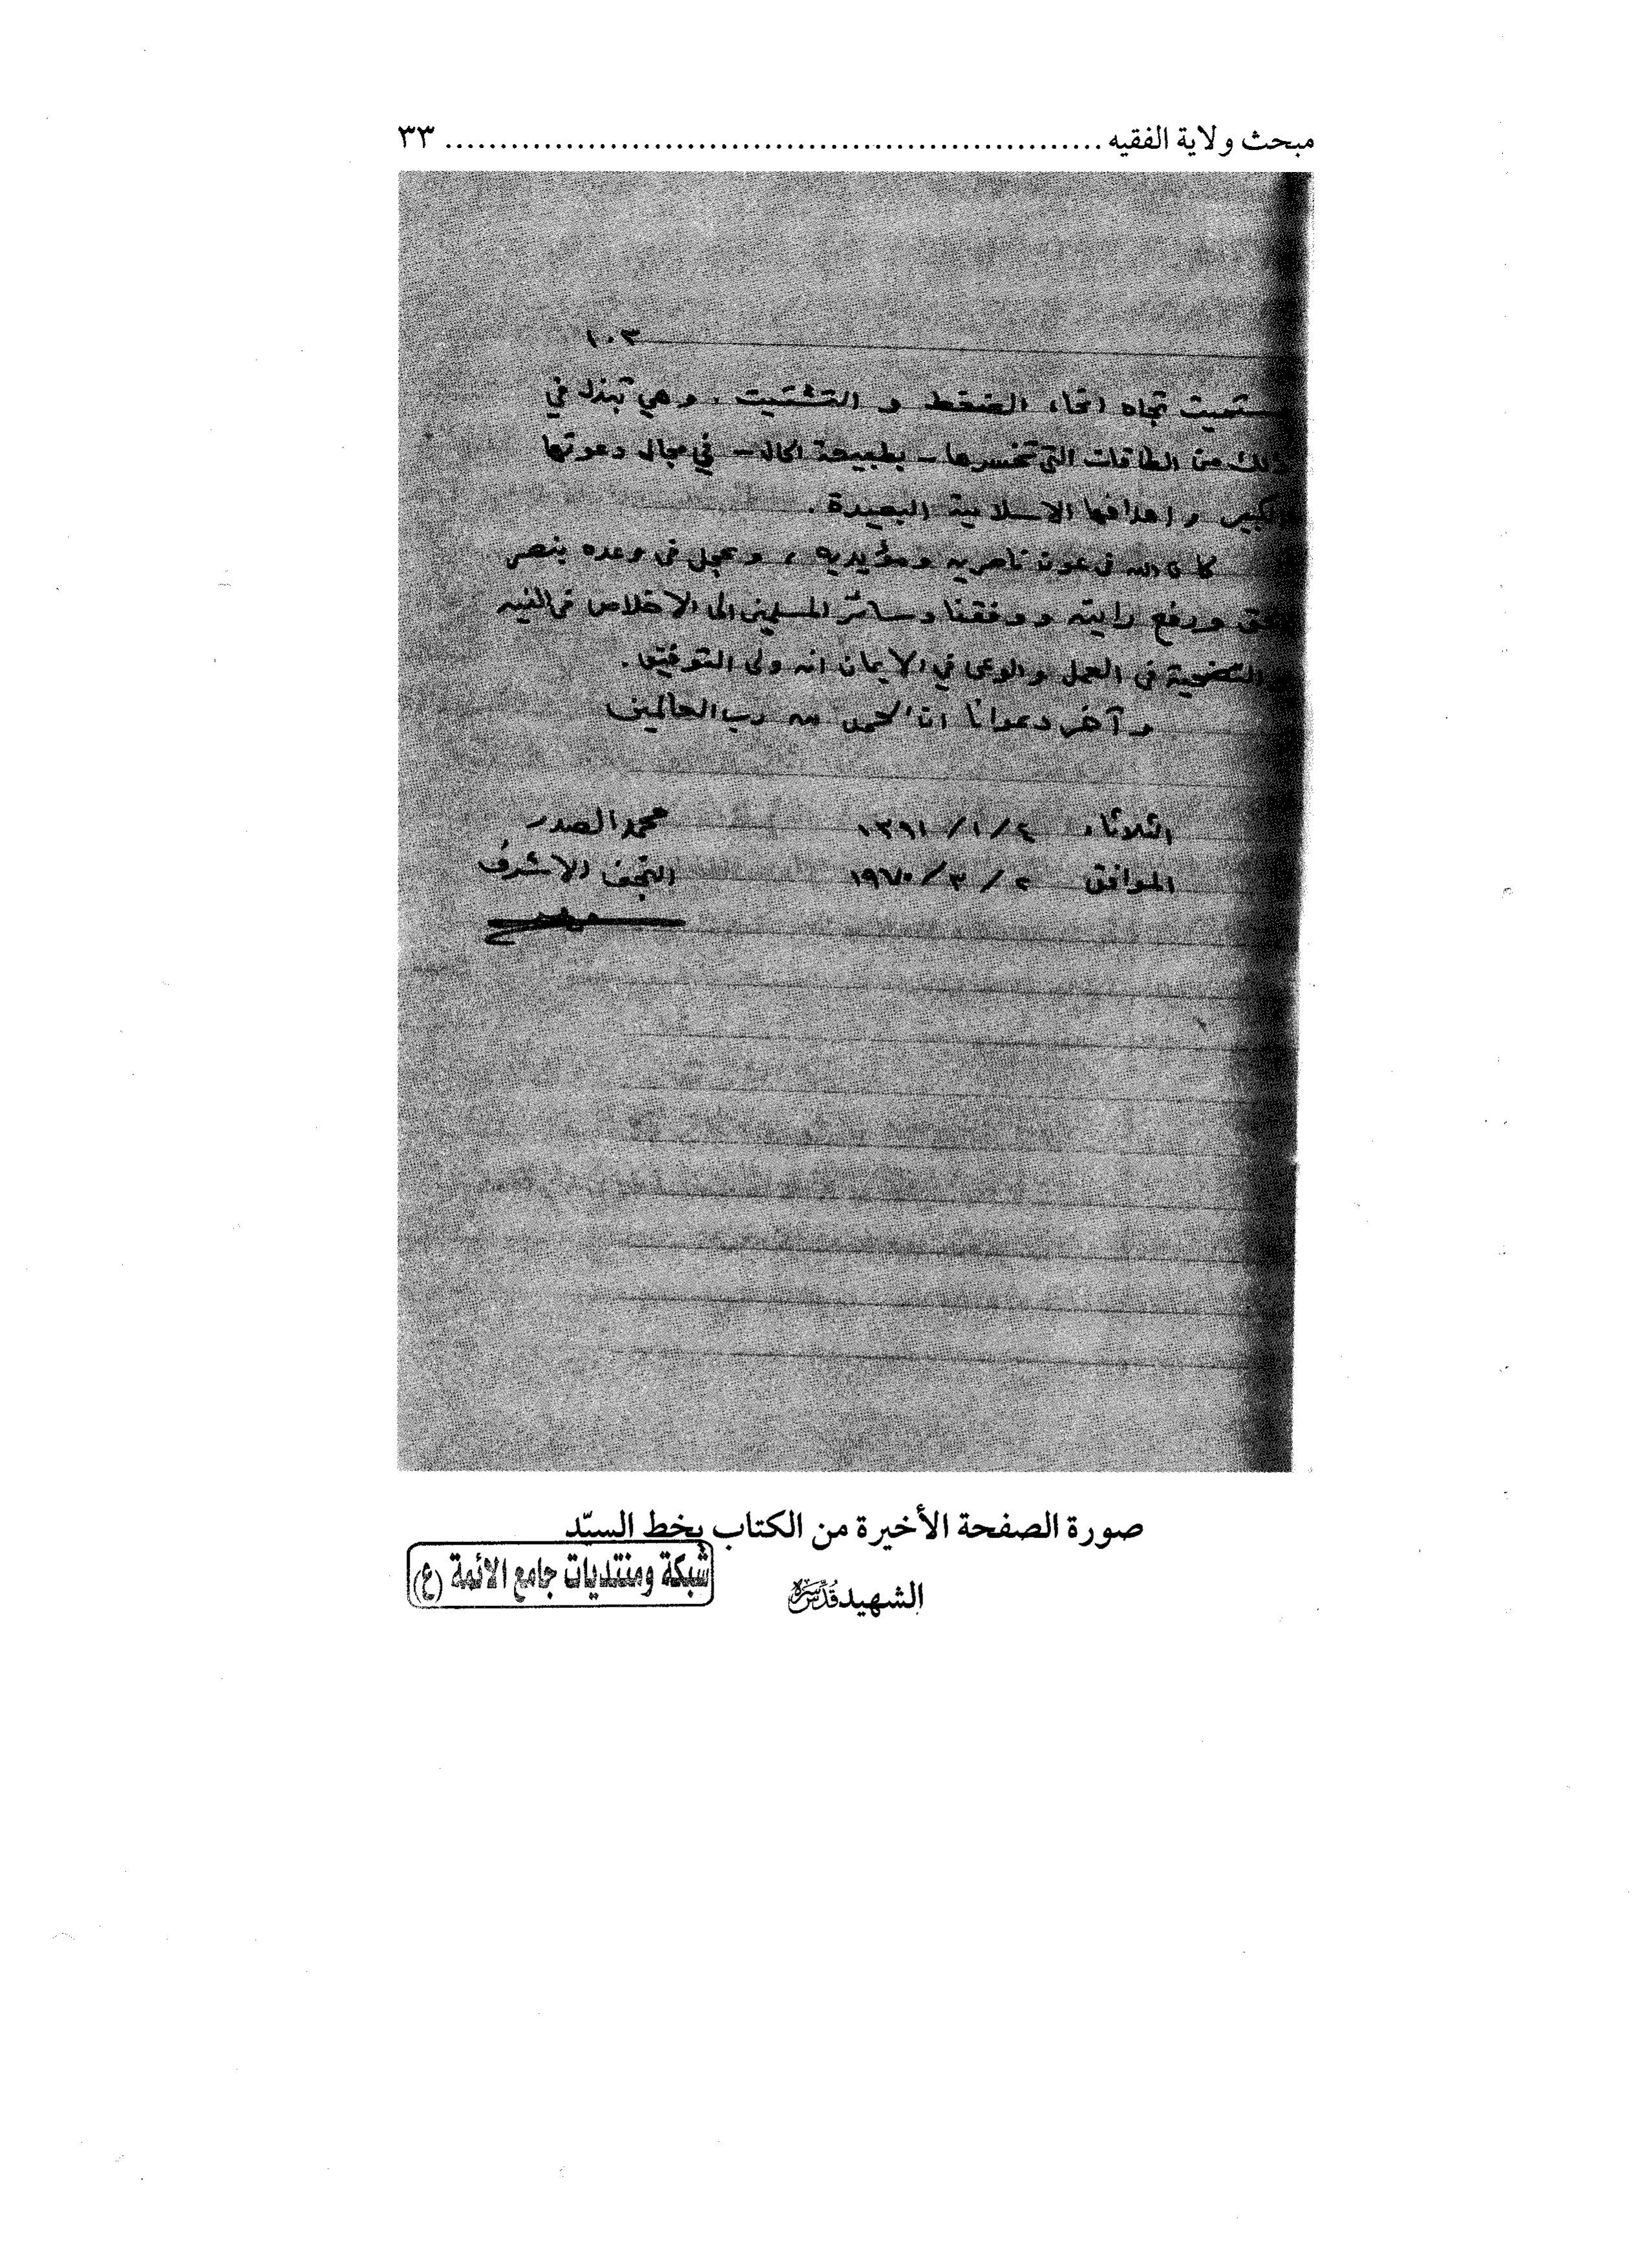 مبحث ولاية الفقيه ............................................................ ٣٣
١٠٣
تجاه انحاء الضغط و التشتيت . وهي تبذل في
ذلك من الطاقات التي تخسرها - بطبيعة الحال - في مجال دعوتها
و اهدافها الاسلامية البعيدة .
كان الله في عون ناصريه ومؤيديه ، وعجل في وعده بنصر
ورفع رايته ووفقنا وسائر المسلمين الى الاخلاص في النيه
التضحية في العمل والوعي في الايمان انه ولي التوفيق .
وآخر دعوانا ان الحمد لله رب العالمين
الثلاثاء ٤ / ١ / ١٣٩١ محمد الصدر
الموافق ٢ / ٣ / ١٩٧٠ النجف الاشرف
صورة الصفحة الأخيرة من الكتاب بخط السيّد
الشهيد قدس سره
شبكة ومنتديات جامع الائمة (ع)